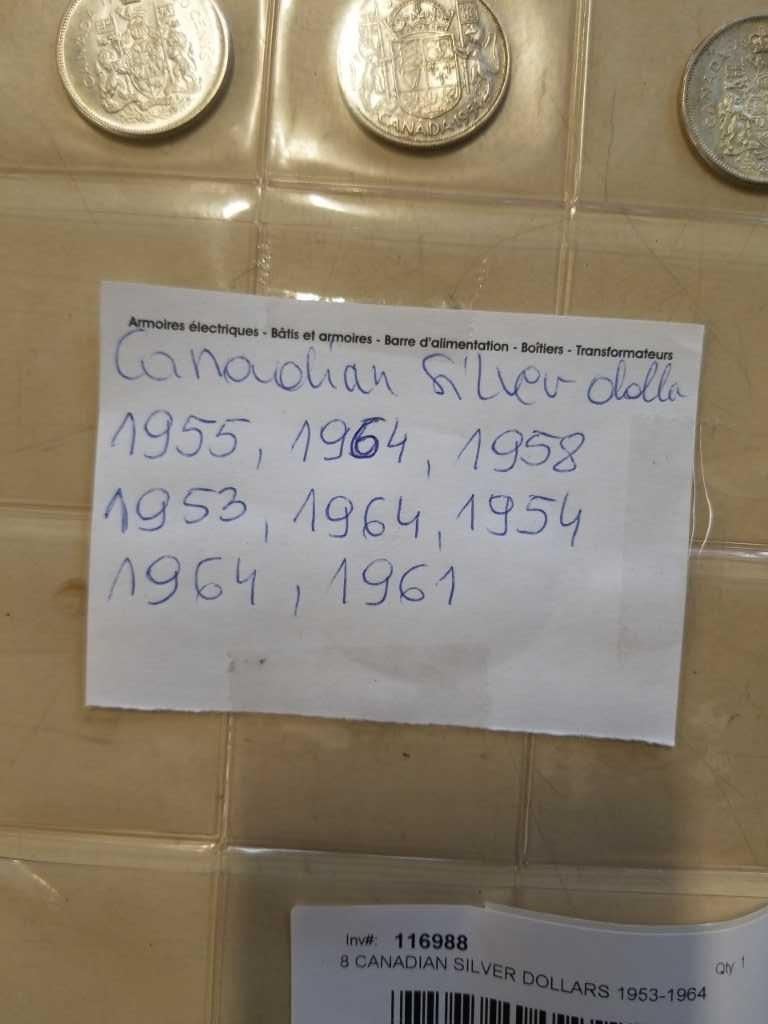 CANADA 19
Armoires électriques - Bâtis et armoires - Barre d'alimentation - Boîtiers - Transformateurs
Canadian Silver dolla
1955, 1964, 1958
1953, 1964, 1954
1964, 1961
Inv#: 116988
Qty 1
8 CANADIAN SILVER DOLLARS 1953-1964